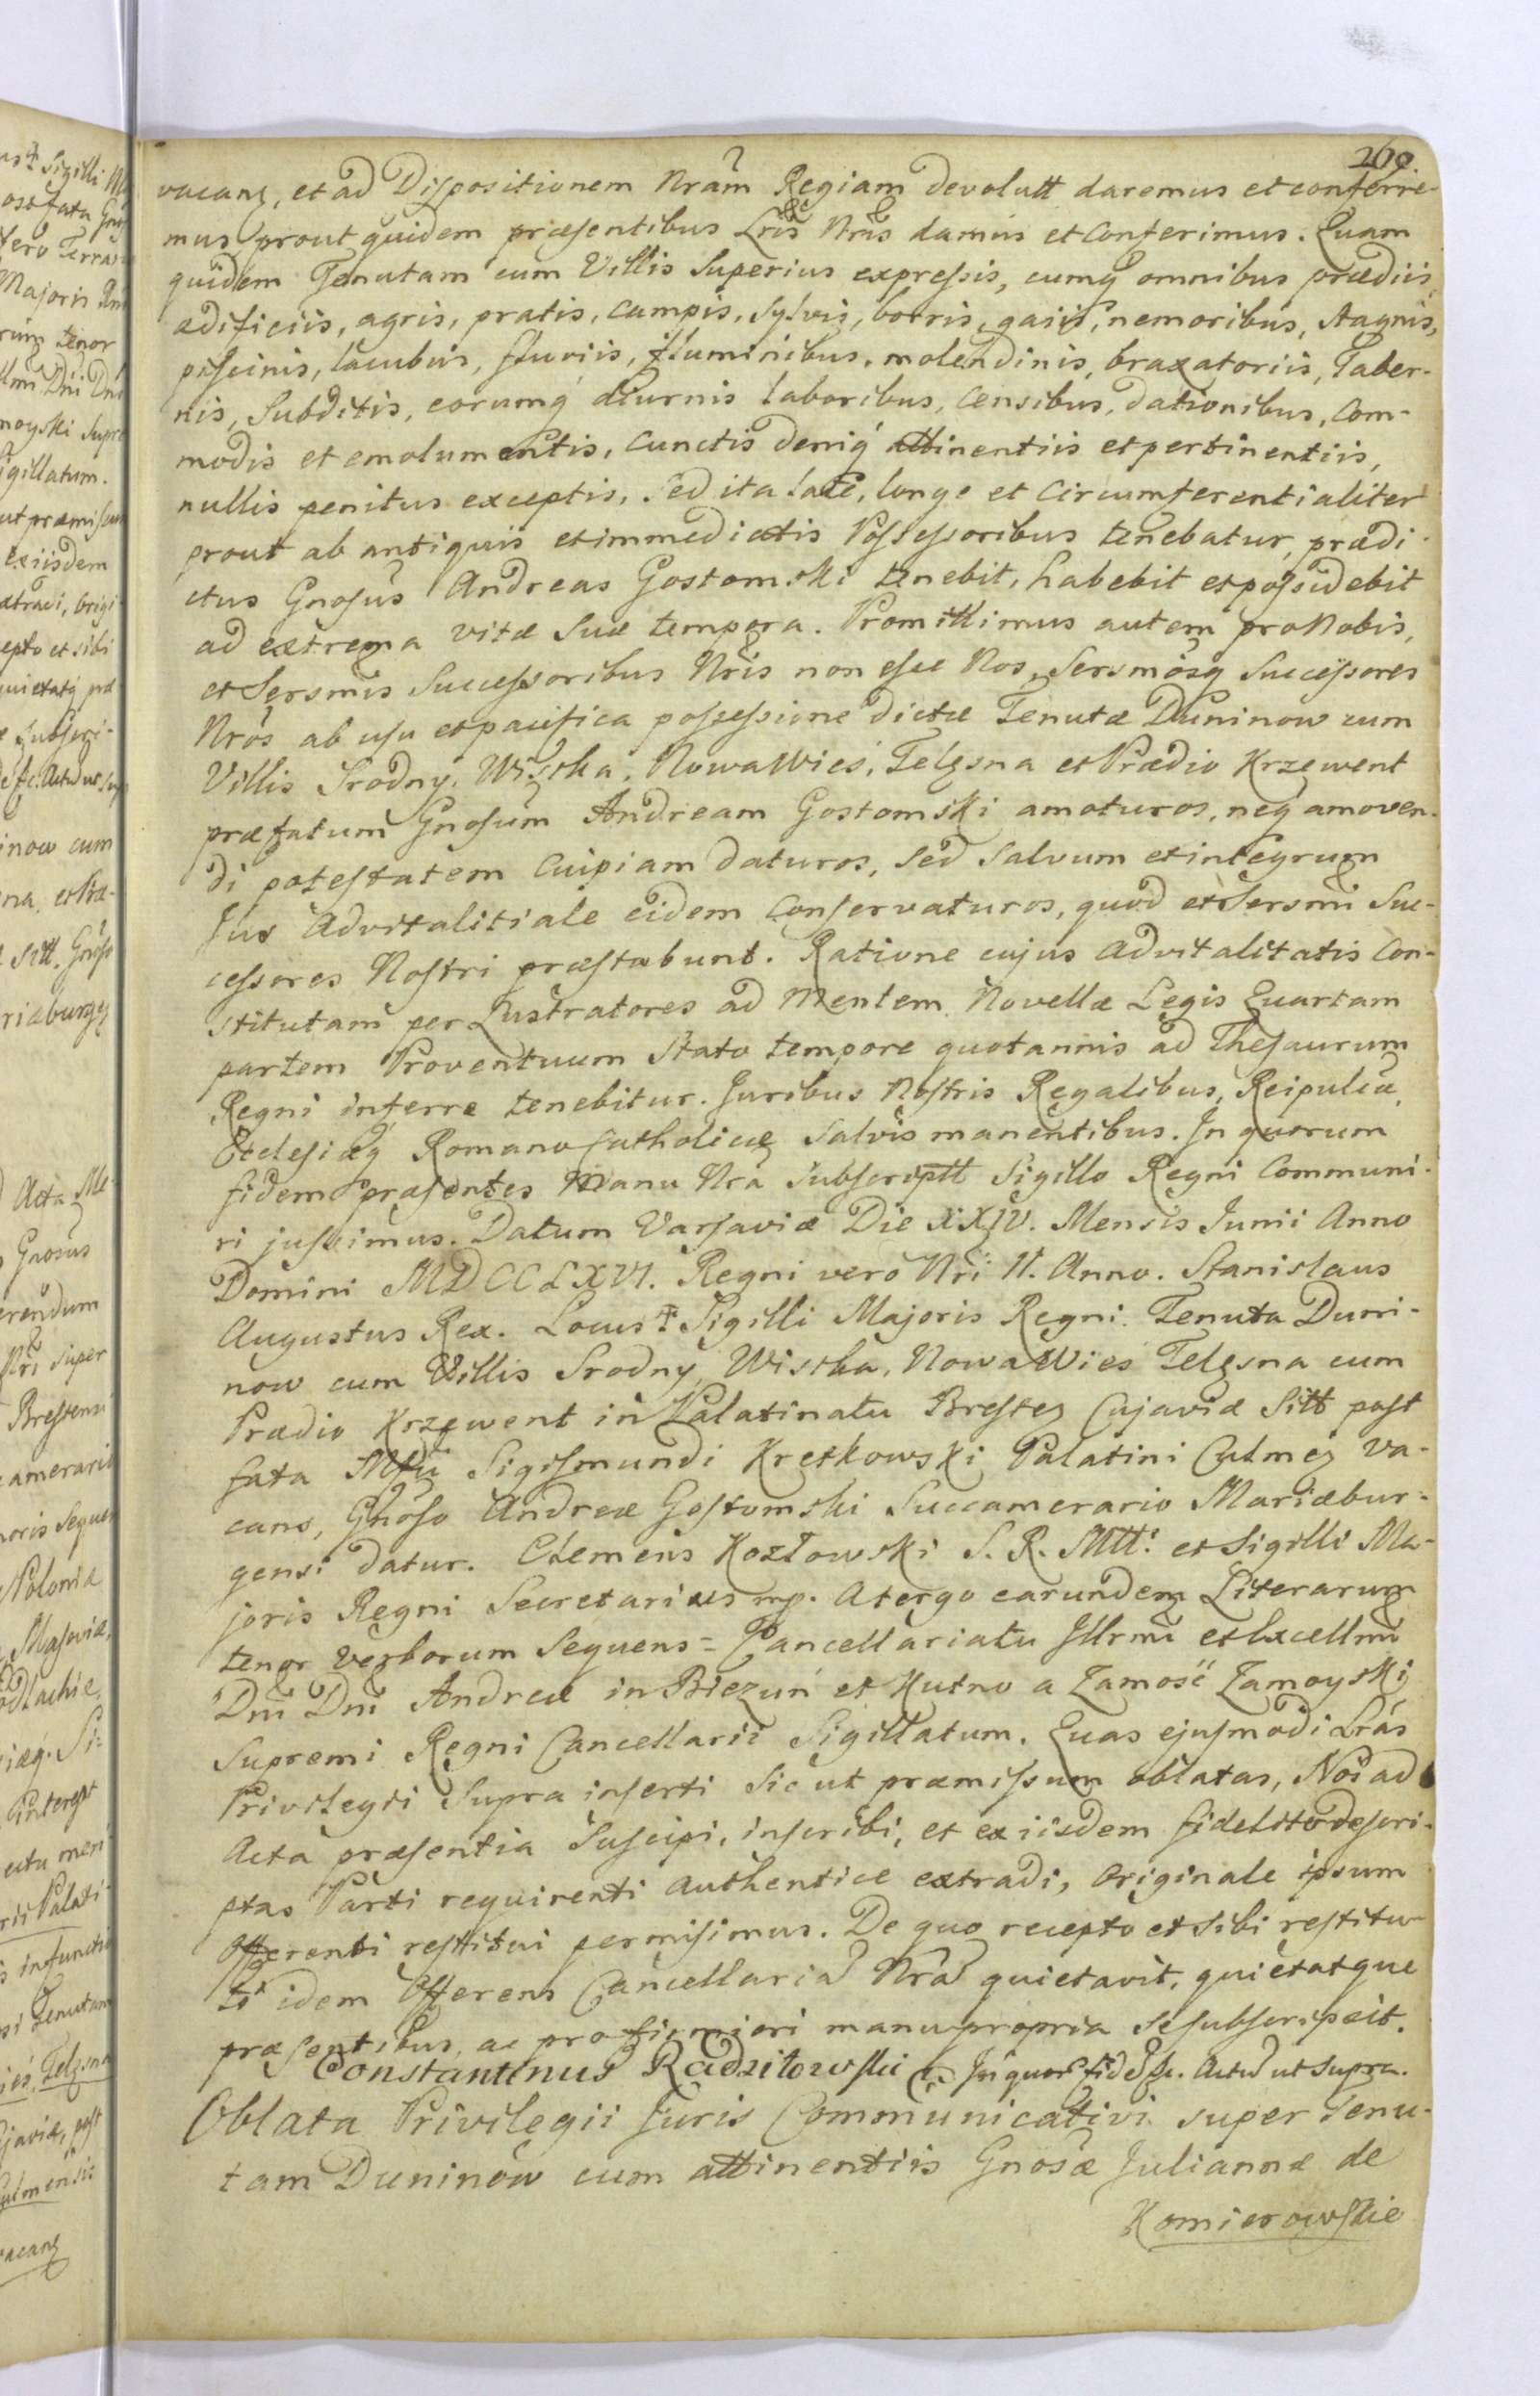 260.
vacans, et ad Dispositionem Nram Regiam devolutt daremus et conferre-
mus prout quidem præsentibus Lris Nris damus et Conferimus. Quam
quidem Tenutam cum Villis Superius expressis, cumq omnibus prædiis,
ædificiis, agris, pratis, campis, Sylvis, borris, gaiis, nemoribus, stagnis,
piscinis, lacubus, fluviis, fluminibus, molendinis, braxatoriis, Taber-
nis, Subditis, eorumq diurnis laboribus, Censibus, dationibus, Com-
modis et emolumentis, Cunctis deniq attinentiis et pertinentiis,
nullis penitus exceptis, Sed ita late, longe et Circumferentialiter
prout ab antiquis et immediatis Possessoribus tenebatur, prædi-
ctus Gnosus Andreas Gostomski tenebit, habebit et possidebit
ad extrema vitæ Suæ tempora. Promittimus autem pro Nobis,
et Sersmis Successoribus Nris non esse Nos, Sersmosq Successores
Nros ab usu et pacifica possessione dictæ Tenutæ Duninow cum
Villis Srodny, Wistka, Nowawies, Telęsna et Prædio Krzewent
præfatum Gnosum Andream Gostomski amoturos, neq amoven-
di potestatem Cuipiam daturos, sed Salvum et integrum
Jus Advitalitiale eidem Conservaturos, quod et Sersmi Suc-
cessores Nostri præstabunt. Ratione cujus advitalitatis Con-
stitutam per Lustratores ad Mentem Novellæ Legis Quartam
partem Proventuum Stato tempore quotannis ad Thesaurum
Regni inferre tenebitur. Juribus Nostris Regalibus, Reipulicæ,
Ecclesiæq Romano Catholicæ Salvis manentibus. In quorum
fidem præsentes Manu Nra Subscriptt Sigillo Regni Communi-
ri jussimus. Datum Varsaviæ Die XXIV. Mensis Junii Anno
Domini MDCCLXVI. Regni vero Nri II. Anno. Stanislaus
Augustus Rex. Locus ‡ Sigilli Majoris Regni. Tenuta Duni-
now cum Villis Srodny, Wistka, Nowawies Telęsna cum
Prædio Krzewent in Palatinatu Bresten Cujaviæ Sitt post
fata Sigismundi Kretkowski Palatini Culmen va-
cans, Gnoso Andreæ Gostomski Succamerario Mariæbur-
gensi datur. Clemens Kozłowski S. R. Mtt: et Sigilli Ma-
joris Regni Secretarius mp. A tergo earundem Literarum
tenor verborum Sequens = Cancellariatu Jllrmi et Excellmi
Dni Dni Andreæ in Biezuń et Kutno a Zamość Zamoyski
Supremi Regni Cancellarii Sigillatum. Quas ejusmodi Lras
Privilegii Supra inserti Sicut præmissum oblatas, Nos ad
Acta præsentia Suscipi, inscribi, et ex iisdem fideliter descri-
ptas Parti requirenti authentice extradi, Originale ipsum
Offerenti restitui permisimus. De quo recepto et Sibi restitu-
to idem Offerens Cancellaria Nra quietavit, quietatque
præsentibus, ac pro firmiori manu propria Se subscripsit.
Constantinus Radzitowski In quor fide &c. Actu ut Supra.
Oblata Privilegii Juris Communicativi super Tenu-
tam Duninow cum attinentiis Gnosæ Juliannæ de
Komierowskie